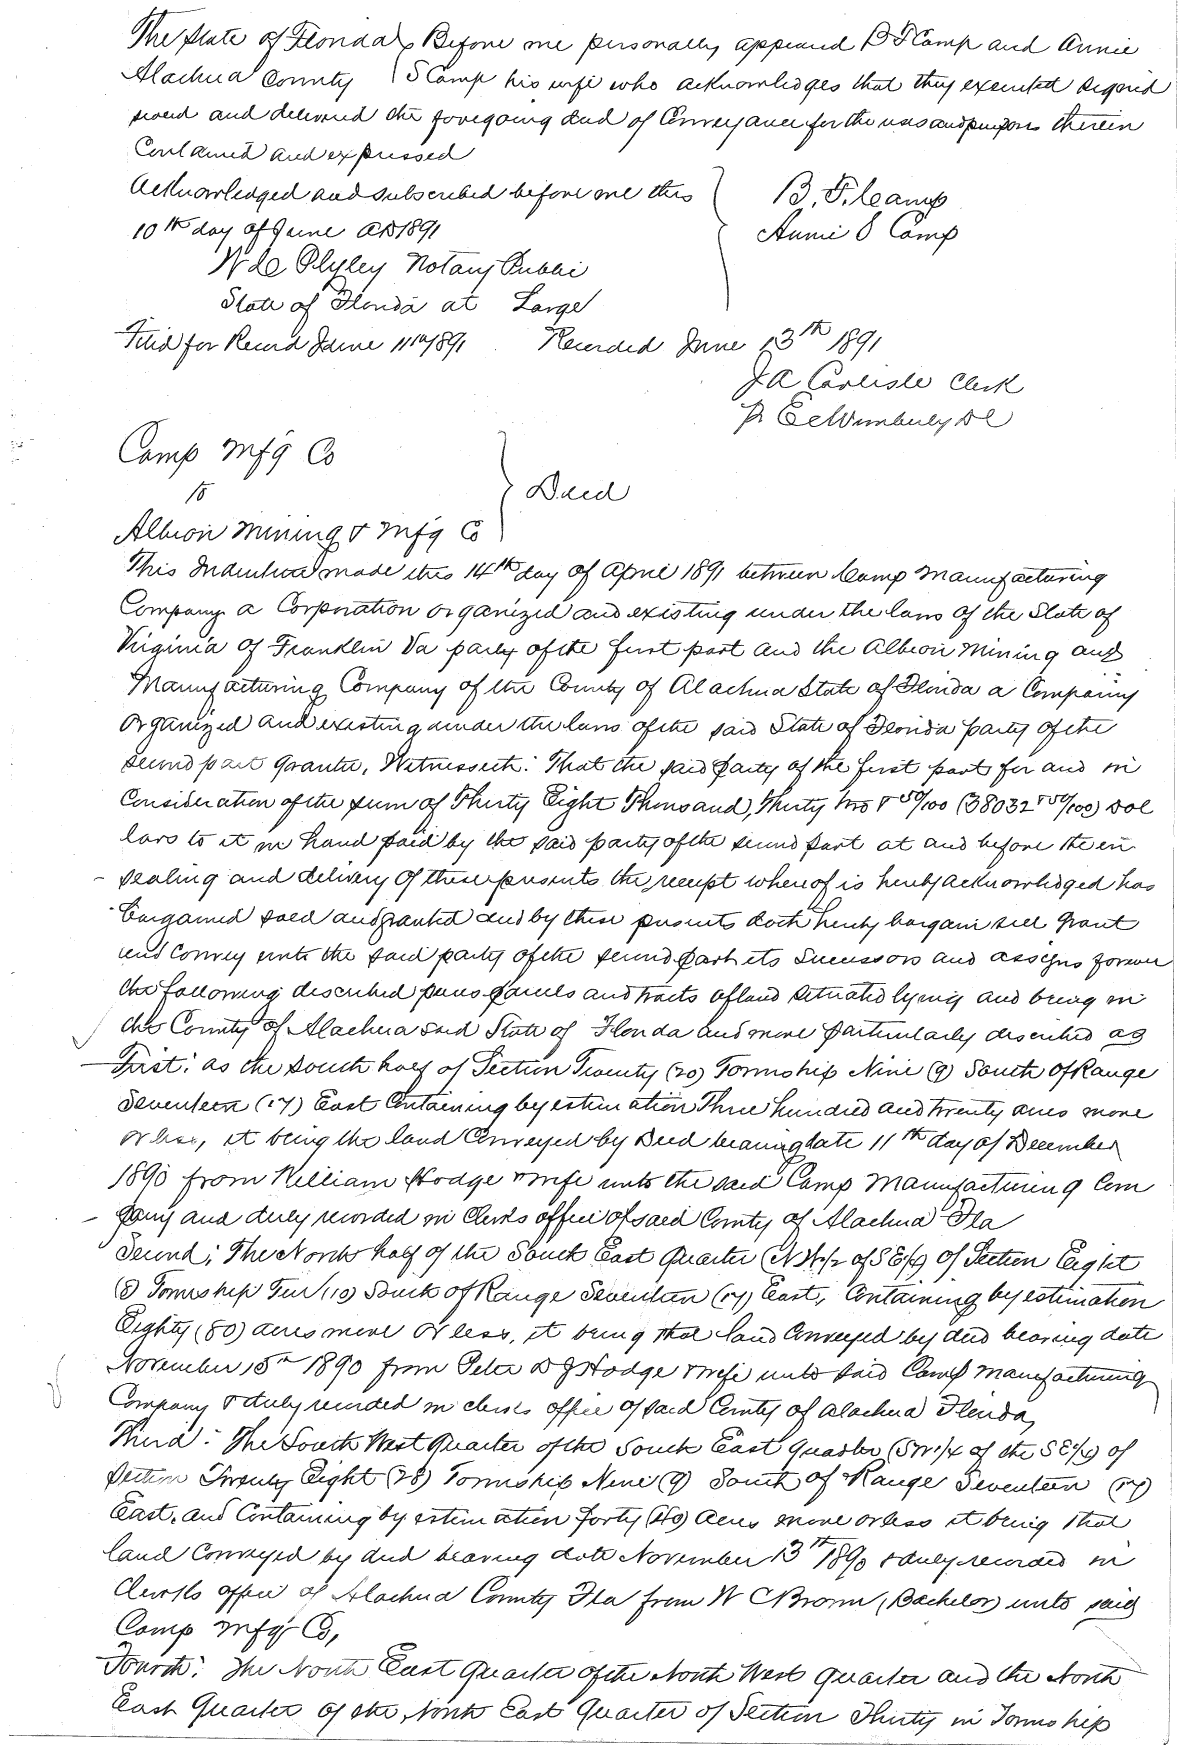 The State of Florida } Before me personally appeared B F Camp and Annie
Alachua County } S Camp his wife who acknowledges that they executed signed
sealed and delivered the foregoing deed of Conveyance for the uses and purposes therein
Contained and expressed
Acknowledged and subscribed before me this
10th day of June AD 1891
B. F. Camp
Annie S Camp
Notary Public
State of Florida at Large
Filed for Record June 11th 1891 Recorded June 13th 1891
J A Carlisle Clerk
p E C Wimberly D C
Camp Mfg Co
to
Deed
Albion Mining & Mfg Co
This Indenture made this 14th day of April 1891 between Camp Manufacturing
Company a Corporation organized and existing under the laws of the State of
Virginia of Franklin Va party of the first part and the Albion Mining and
Manufacturing Company of the County of Alachua State of Florida a Company
organized and existing under the laws of the said State of Florida party of the
second part grantee, Witnesseth: That the said party of the first part for and in
Consideration of the sum of Thirty Eight Thousand, Thirty two & 50/100 (38032 & 50/100) Dol
lars to it in hand paid by the said party of the second part at and before the en
sealing and delivery of these presents the receipt whereof is hereby acknowledged has
bargained sold and granted and by these presents doth hereby bargain sell grant
and convey unto the said party of the second part its Successors and assigns forever
the following described pieces parcels and tracts of land situated lying and being in
the County of Alachua said State of Florida and more particularly described as
First: as the South half of Section Twenty (20) Township Nine (9) South of Range
Seventeen (17) East Containing by estimation Three hundred and twenty acres more
or less, it being the land Conveyed by Deed bearing date 11th day of December
1890 from William Hodge & wife unto the said Camp Manufacturing Com
pany and duly recorded in Clerks office of said County of Alachua Fla
Second; The North half of the South East Quarter (N 1/2 of SE 1/4) of Section Eight
(8) Township Ten (10) South of Range Seventeen (17) East, Containing by estimation
Eighty (80) acres more or less, it being that land Conveyed by deed bearing date
November 15th 1890 from Peter D J Hodge & wife unto said Camp Manufacturing
Company & duly recorded in clerks office of said County of Alachua Florida,
Third: The South West Quarter of the South East Quarter (SW 1/4 of the SE 1/4) of
Section Twenty Eight (28) Township Nine (9) South of Range Seventeen (17)
East, and Containing by estimation Forty (40) Acres more or less it being that
land Conveyed by deed bearing date November 13th 1890 & duly recorded in
Clerks office of Alachua County Fla from W C Brown (Bachelor) unto said
Camp Mfg Co,
Fourth: The North East Quarter of the North West Quarter and the North
East Quarter of the North East Quarter of Section Thirty in Township